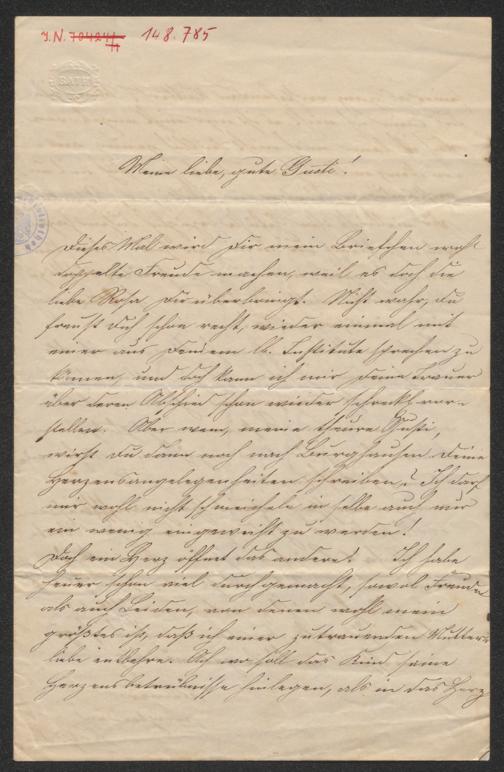 J.N. 70424/11 148.785
BATH
Meine liebe, gute Gusti!
Dieses Mal wird Dir mein Briefchen wohl
doppelte Freude machen, weil es doch die
liebe Rosa Dir überbringt. Nicht wahr, Du
freust Dich schon recht, wieder einmal mit
einer aus Deinem lb. Institute sprechen zu
können, und doch kann ich mir Deine Trauer
über deren Abschied schon wieder vor-
stellen. Aber wem, meine theure Gusti,
wirst Du dann noch nach Burghausen Deine
Herzensangelegenheiten schreiben? Ich darf
mir wohl nicht schmeicheln in selbe auch nur
ein wenig eingeweiht zu werden!
Doch ein Herz öffnet das andere. Ich habe
heuer schon viel durchgemacht, sowol Freuden
als auch Leiden, von denen wohl mein
größtes ist, daß ich einer zutrauenden Mutter-
liebe entbehre. Ach wo soll das Kind seine
Herzensbetrübnisse hinlegen, als in das Herz